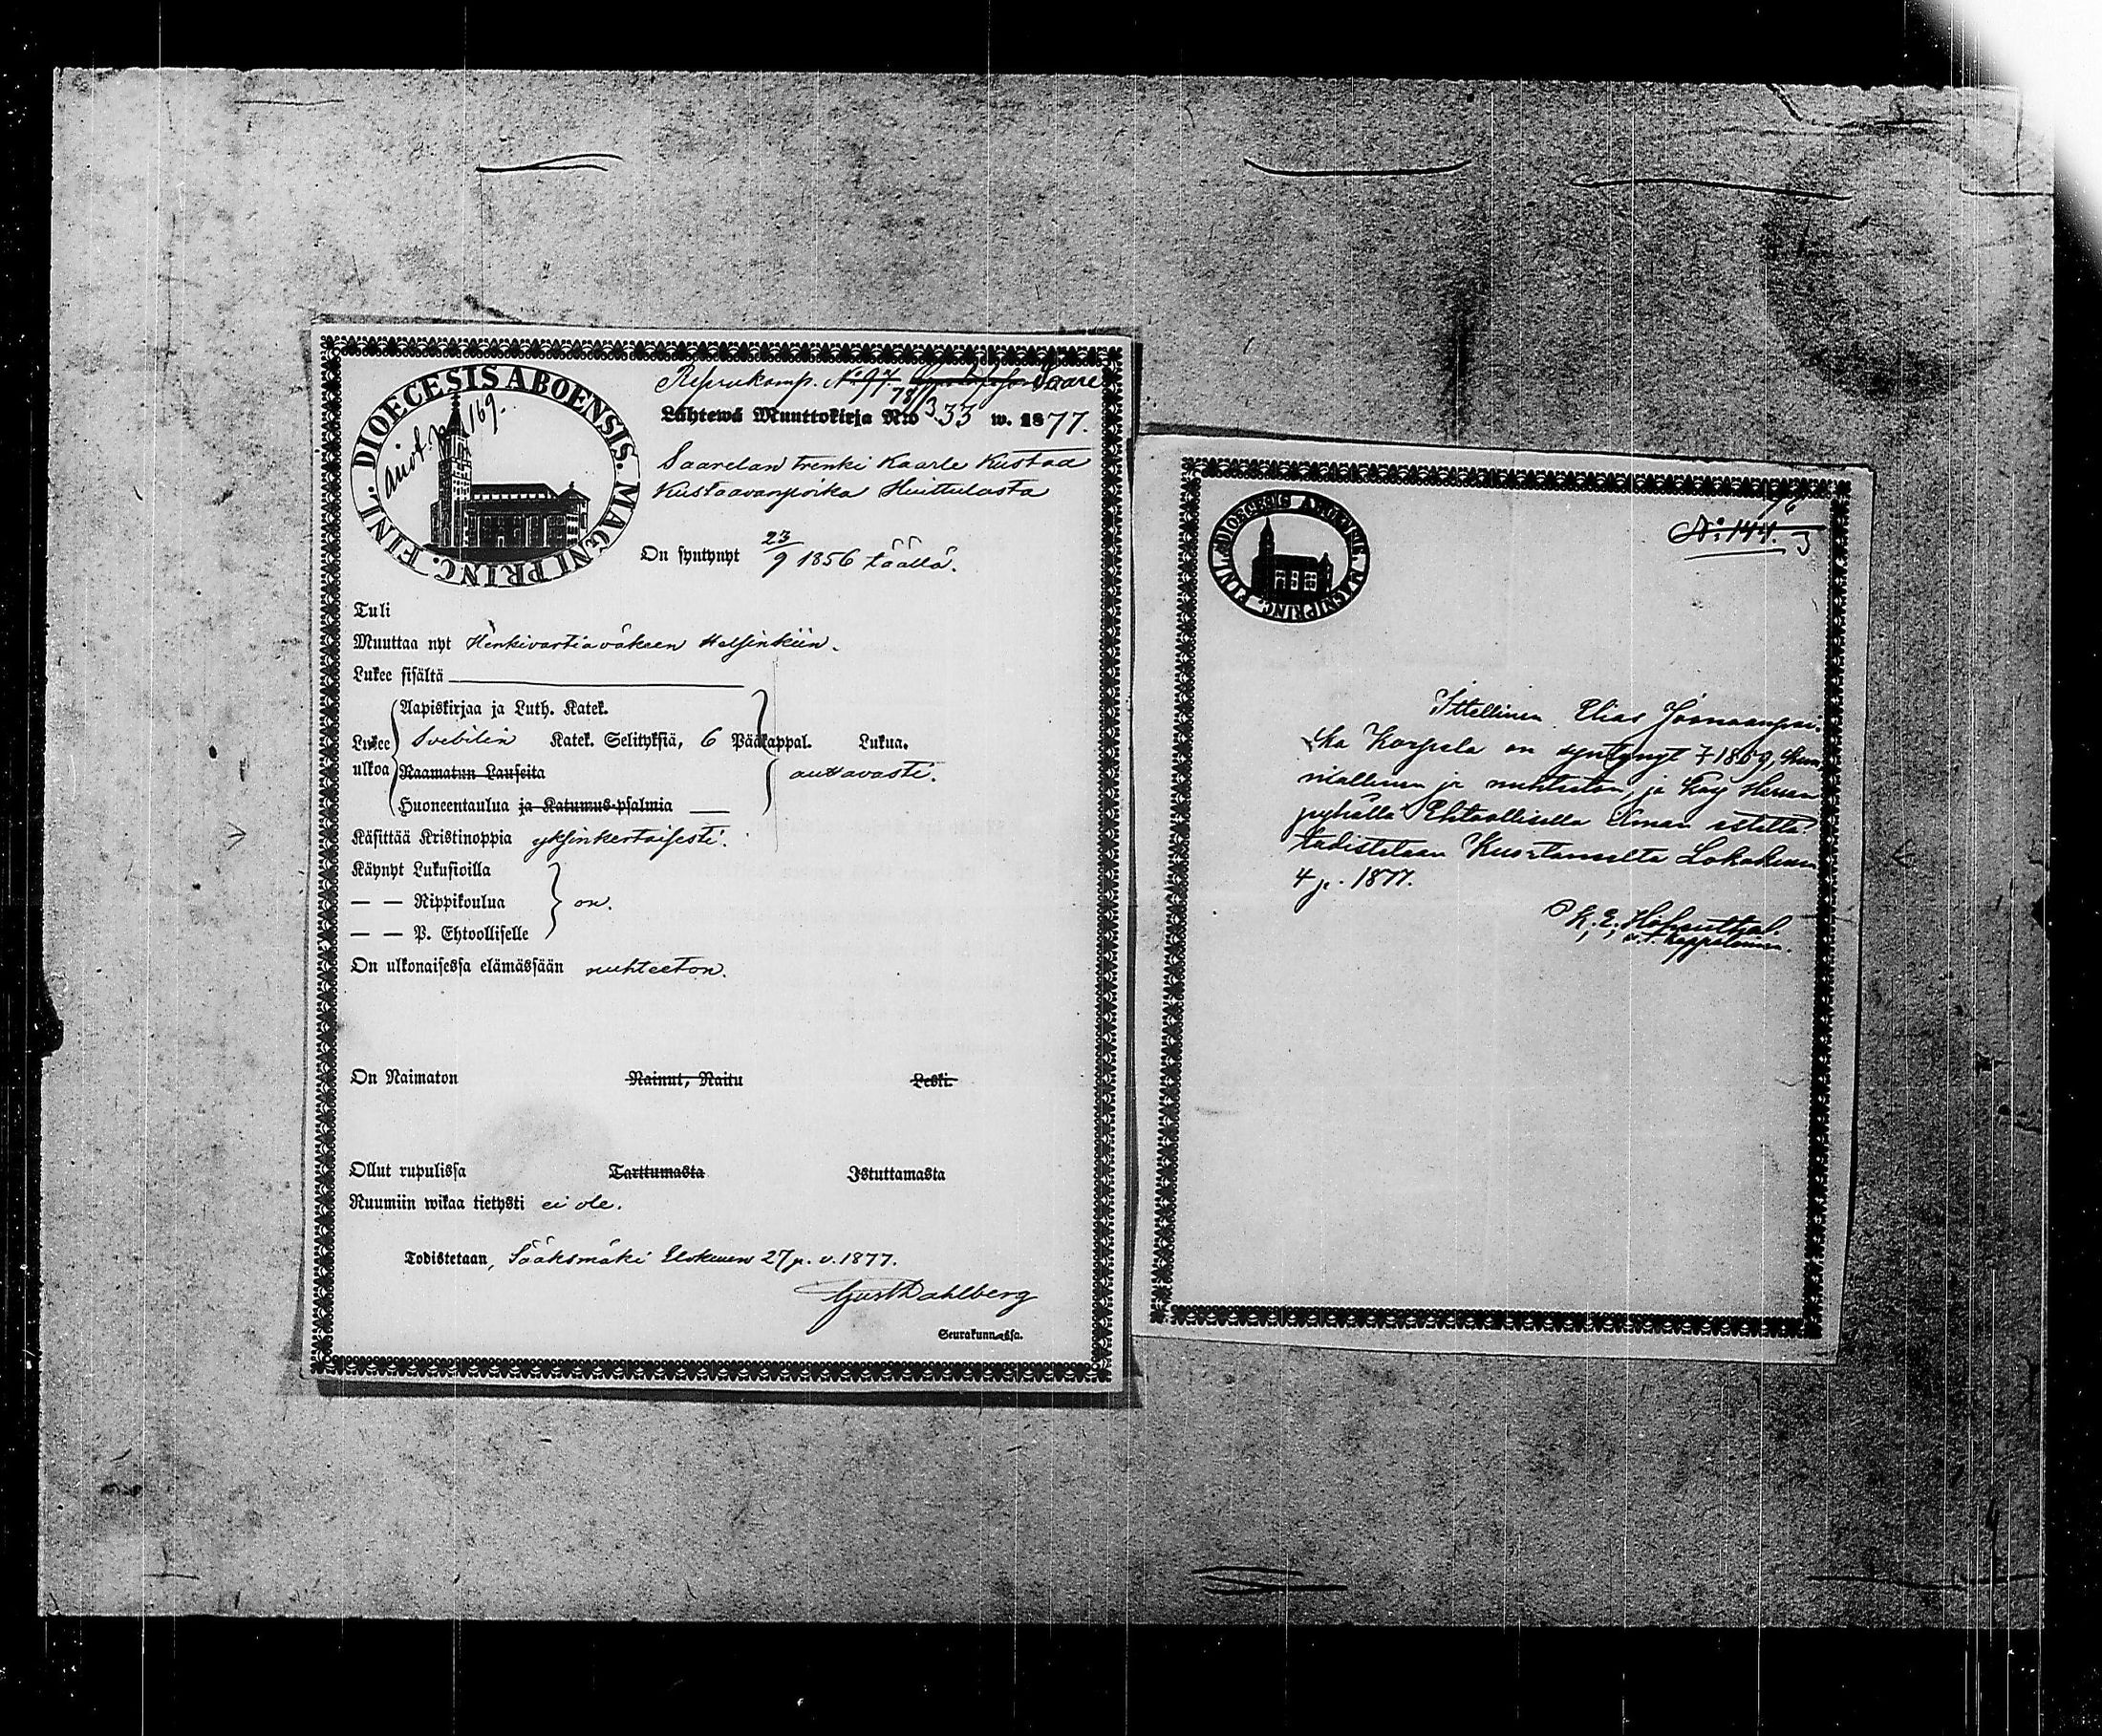 DIOECESIS ABOENSIS. MAGNI PRINC. FINL.
anot. p. 169.
Reservkomp. N:o 97. Saare
78
Lähtewä Muuttokirja N:o 333 w. 1877.
Saarelan trenki Kaarle Kustaa
Kustaavanpoika Huittulasta
On syntynyt 23/9 1856 täällä.
Tuli
Muuttaa nyt Henkivartiaväkeen Helsinkiin.
Lukee sisältä
Lukee ulkoa
Aapiskirjaa ja Luth. Katek.
Svebilin Katek. Selityksiä, 6 Pääkappal. Lukua.
Raamatun Lauseita auttavasti.
Huoneentaulua ja Katumus-psalmia
Käsittää Kristinoppia yksinkertaisesti.
Käynyt Lukusioilla
— — Rippikoulua on.
— — P. Ehtoolliselle
On ulkonaisessa elämässään nuhteeton.
On Naimaton Nainut, Naitu Leski.
Ollut rupulissa Tarttumasta Istuttamasta
Ruumiin wikaa tietysti ei ole.
Todistetaan, Sääksmäki Elokuun 27 p. v. 1877.
Gust Dahlberg
Seurakunnassa.
DIOECESIS ABOENSIS. MAGNI PRINC. FINL.
N:o 144.
Ittellinen Elias Joonaanpoi-
ka Korpela on syntynyt 1859,
niallinen ja nuhteeton, ja käy Herran
pyhällä Ehtoollisella ilman estettä.
todistetaan Kuortaneelta Lokakuun
4 p. 1877.
K. E.
v. t. kappalainen.